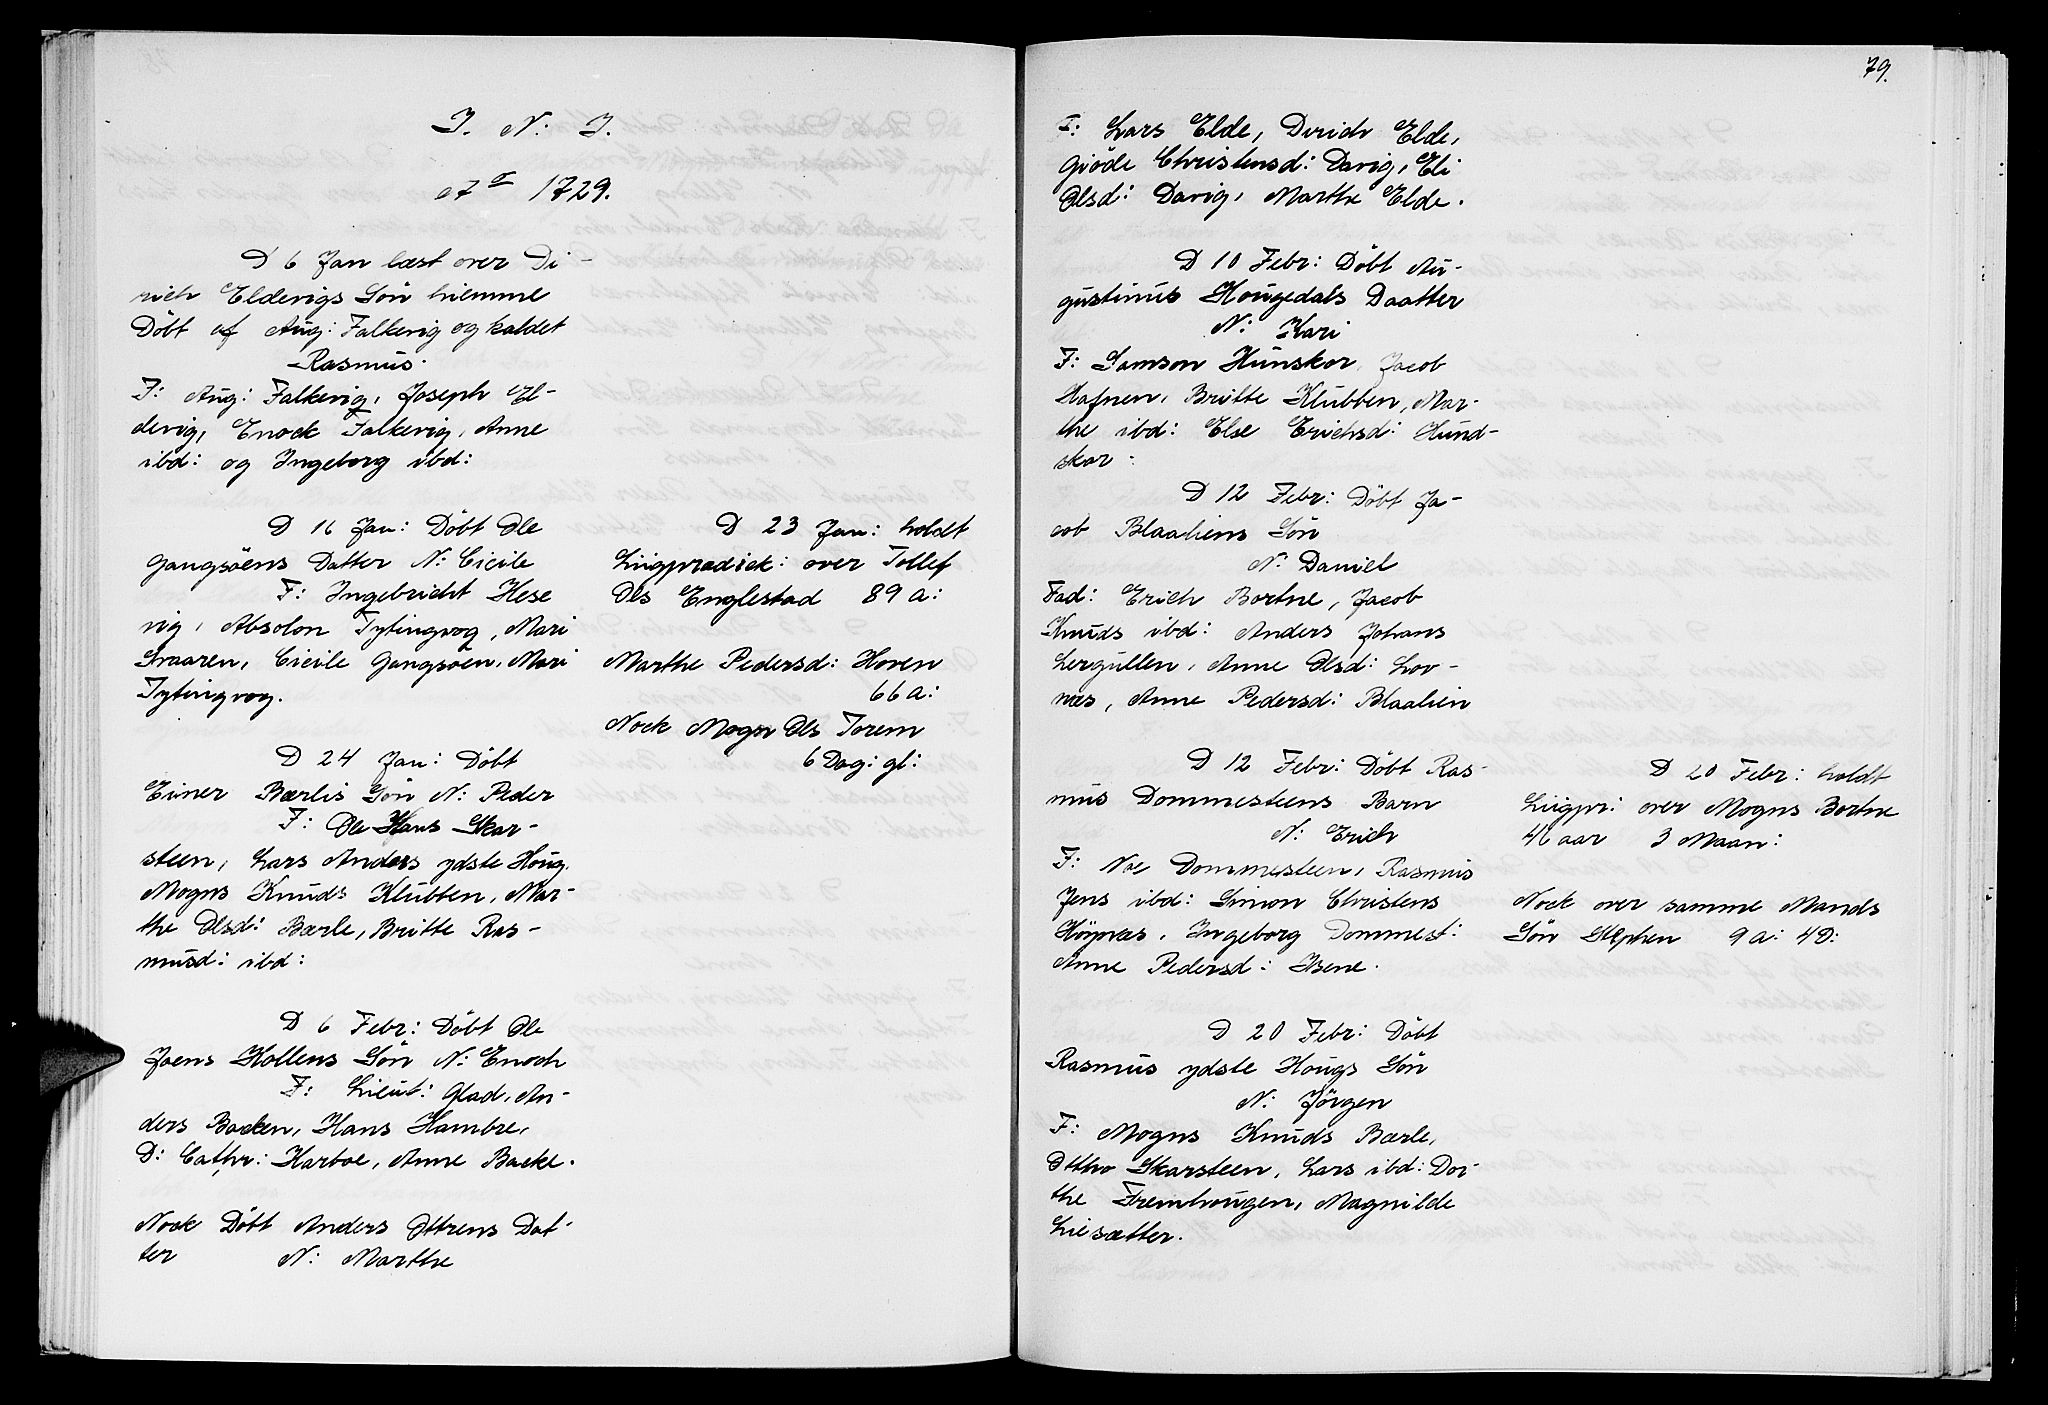 I. N: I.
A° 1729.
D 6 Jan læst over Di-
rich Elderigs Sön hiemme
Döbt af Aug: Falkevig og kaldet
Rasmus.
F: Aug: Falkevig, Joseph El-
devig, Enock Falkevig, Anne
ibd: og Ingeborg ibd:
D 16 Jan: Döbt Ole
Gangsöens Datter N: Cicile
F: Ingebricht Hese
vig, Absolon Tytingvog, Mari
Sraaren, Cicile Gangsöen, Mari
Tytingvog.
D 24 Jan: Döbt
Einer Bærlis Sön N: Peder
F: Ole Hans Skar-
steen, Lars Anders ydste Houg.
Mogns Knuds Klubben, Mar-
the Olsd: Bærle, Britte Ras-
musd: ibd:
D 6 Febr: Döbt Ole
Joens Hollens Sön N: Enoch
F: Lieut: Glad, An-
ders Backen, Hans Hambre,
D: Cathr: Harboe, Anne Backe.
Nock Döbt Anders Yttrens Dat-
ter N: Marthe
D 23 Jan: holdt
Liigprædick: over Tollef
Ols Englestad 89 a:
Marthe Pedersd: Hoven
66 a:
Nock Mogn Ols Torem
6 Dag: gl:
79.
F: Lars Elde, Dirich Elde,
Giöde Christensd: Davig, Eli
Olsd: Davig, Marthe Elde.
D 10 Febr: Döbt Au-
gustinus Hougedals Daatter
N: Kari
F: Samson Hunskor, Jacob
Hafnen, Britte Klubben, Mar-
the ibd: Else Erichsd: Hund-
skar.
D 12 Febr: Döbt Ja-
cob Blaaliens Sön
N: Daniel
Fad: Erich Bortne, Jacob
Knuds ibd: Anders Johans
Lergullen, Anne Olsd: Lov-
næs, Anne Pedersd: Blaalien
D 12 Febr: Döbt Ras-
mus Dommesteens Barn
N: Erich
F: Noe Dommesteen, Rasmus
Jens ibd: Simon Christens
Höynæs, Ingeborg Dommest:
Anne Pedersd: Isene.
D 20 Febr: Döbt
Rasmus ydste Hougs Sön
N: Jörgen
F: Mogns Knuds Bærle,
Ottho Skarsteen, Lars ibd: Dor-
the Fremhougen, Magnilde
Liesætter.
D 20 Febr: holdt
Liigpr: over Mogns Bortne
41 aar 3 Maan:
Nock over samme Mands
Sön Stephen 9 a: 4 D: